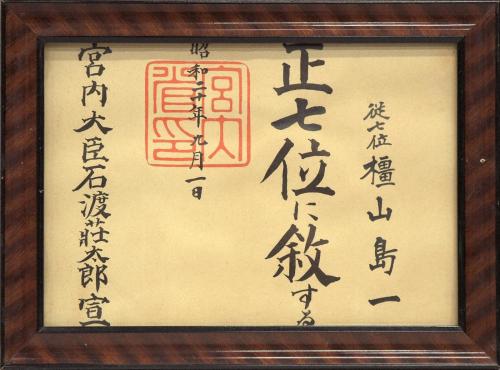 従七位 橿山島一
正七位に敘する
昭和二十年九月一日
宮内省印
宮内大臣石渡莊太郎宣